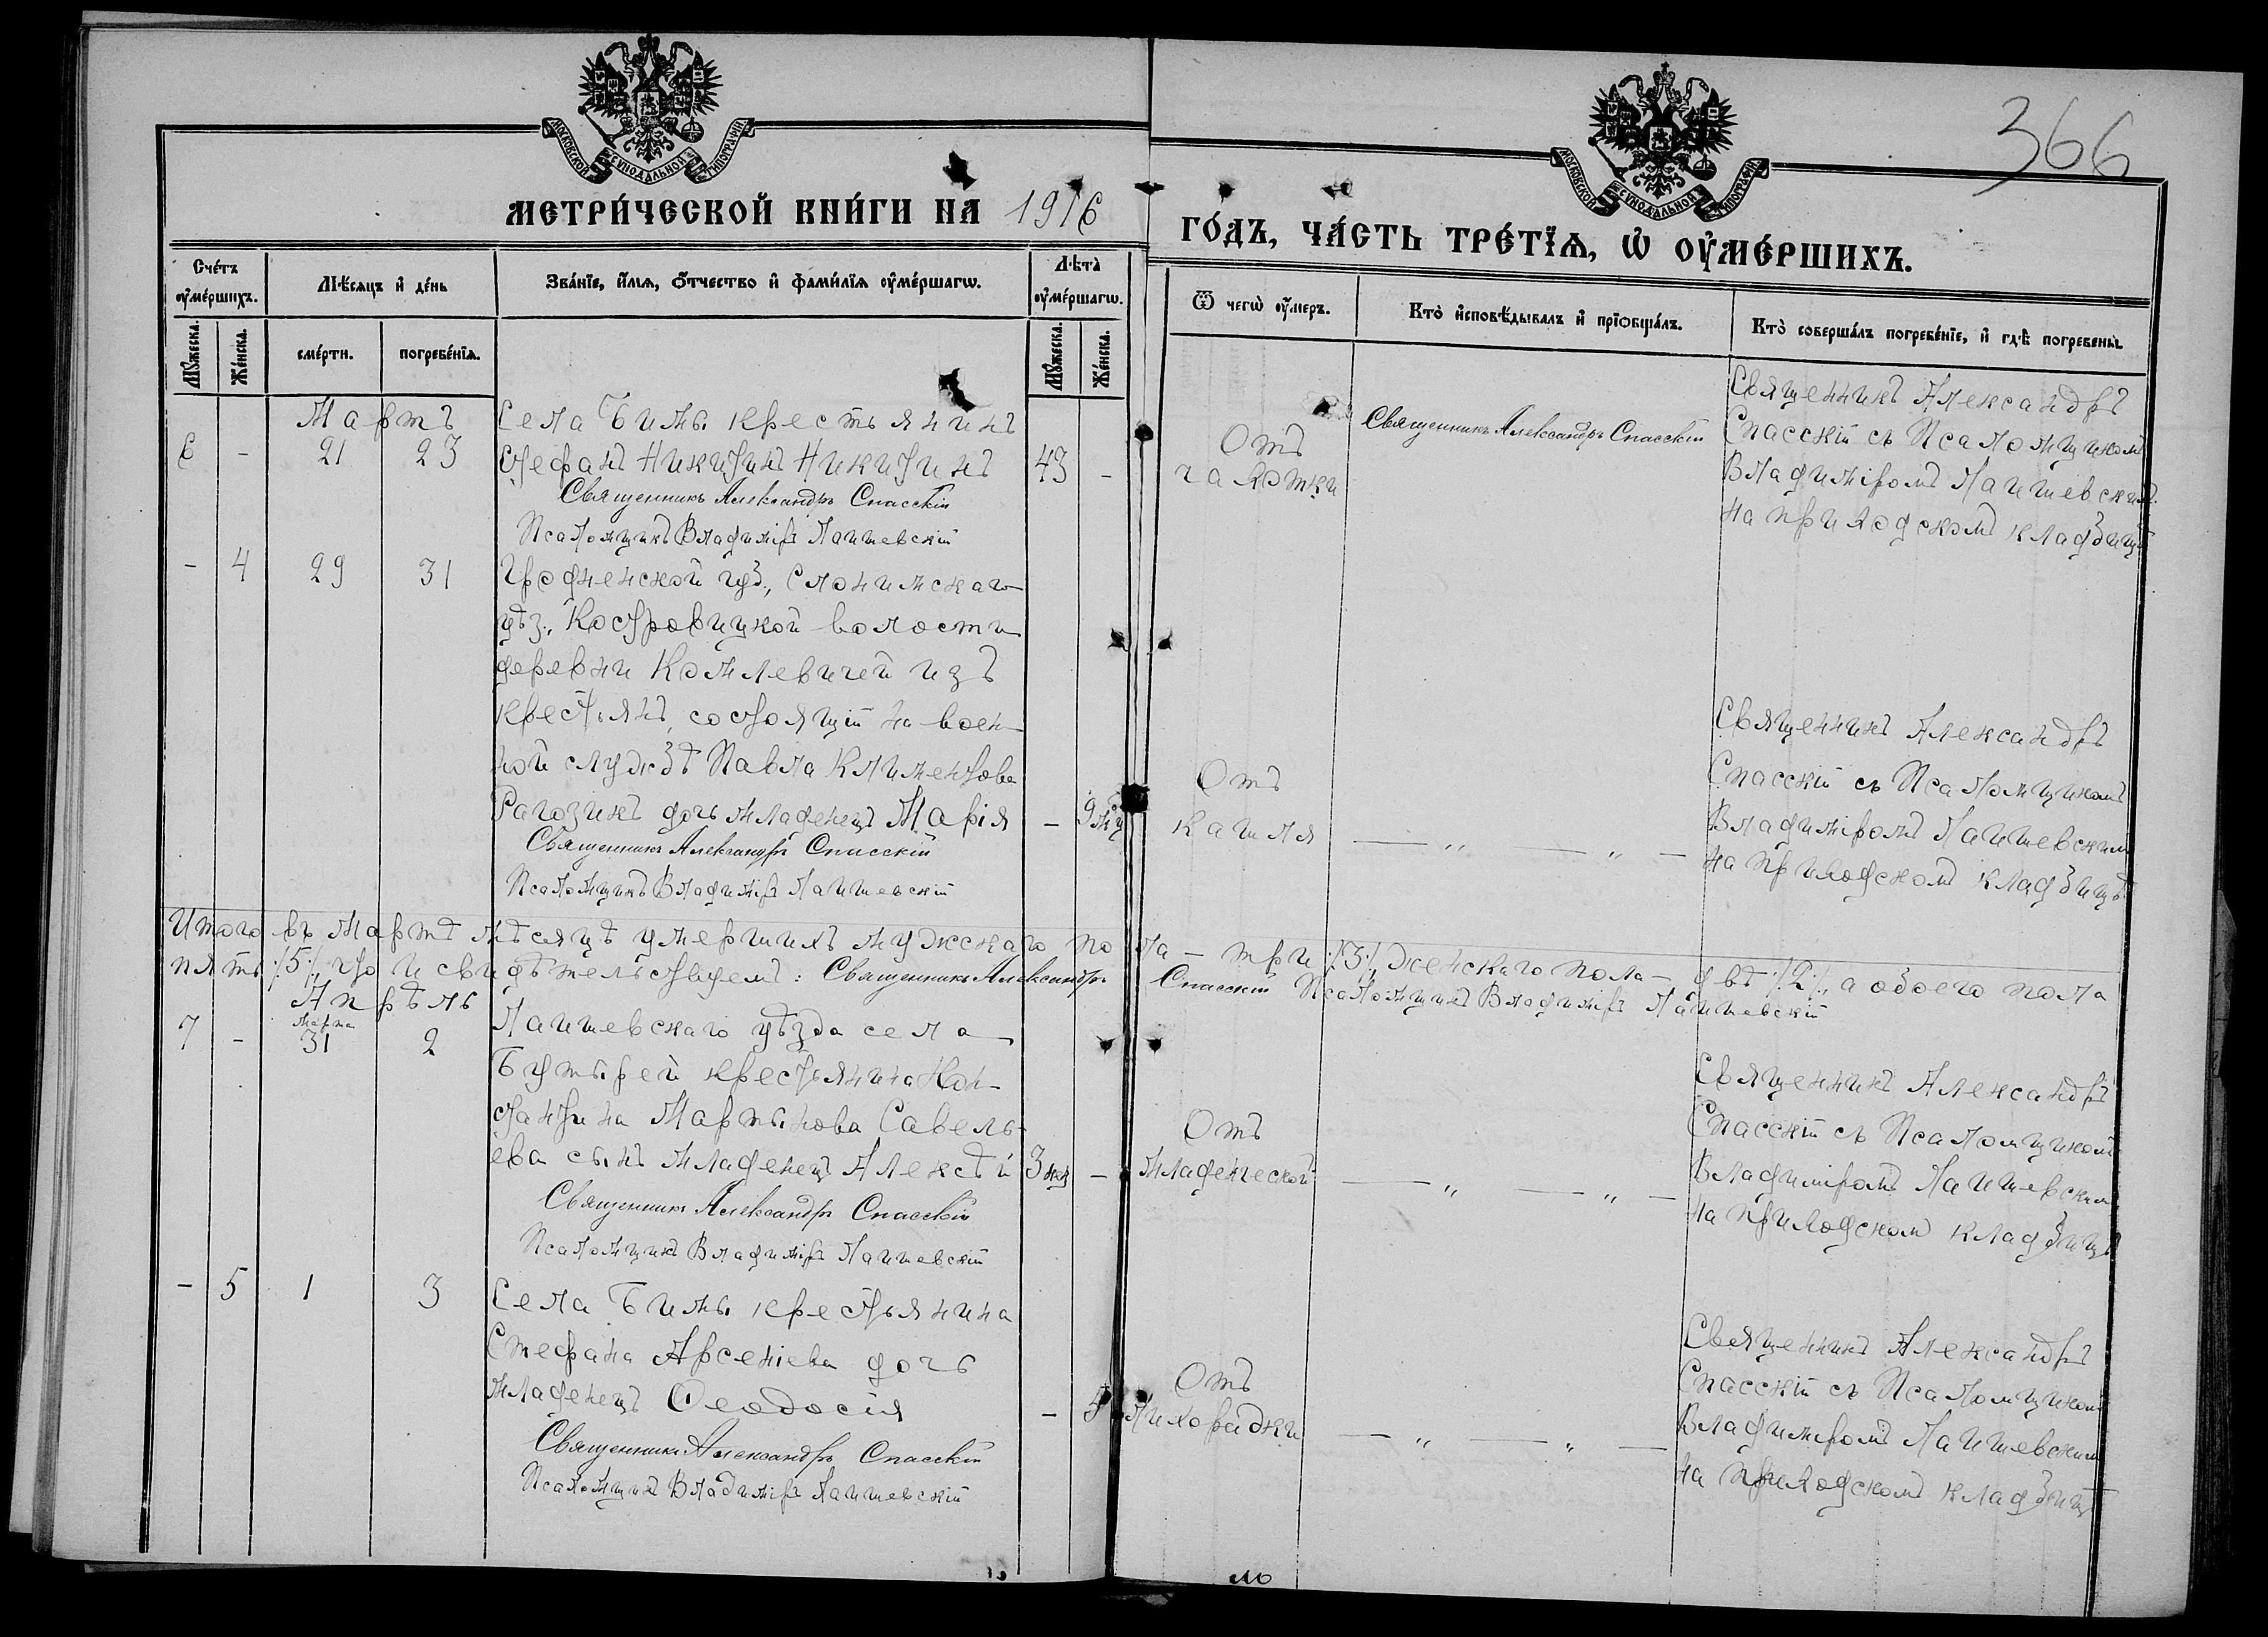 366
МОСКОВСКОЙ СѴНОДАЛЬНОЙ ТИПОГРАФІИ
МОСКОВСКОЙ СѴНОДАЛЬНОЙ ТИПОГРАФІИ
МЕТРИ́ЧЕСКОЙ КНИ́ГИ НА 1916
ГО́ДЪ, ЧА́СТЬ ТРЕ́ТЇѦ, Ѡ҆ ОУ҆МЕ́РШИХЪ.
Сче́тъ оу҆ме́ршихъ.
Мꙋ́жеска.
Же́нска.
Мѣ́сяцъ и҆ де́нь
сме́рти.
погребе́нїѧ.
Зва́нїе, и҆́мѧ, ѻ҆́тчество и҆ фами́лїѧ оу҆ме́ршагѡ.
Лѣта̀ оу҆ме́ршагѡ.
Мꙋ́жеска.
Же́нска.
Ѿ чегѡ̀ оу҆́меръ.
Кто̀ и҆сповѣ́дывалъ и҆ прїѡбща́лъ.
Кто̀ соверша́лъ погребе́нїе, и҆ гдѣ̀ погребены̀.
Мартъ
6 - 21 23
Села Бимы крестьянинъ
Стефанъ Никитинъ Никитинъ
43 -
Священникъ Александръ Спасскій
Псаломщикъ Владиміръ Лаишевскій
Отъ
чахотки
Священникъ Александръ Спасскій
Священникъ Александръ
Спасскій съ Псаломщикомъ
Владиміромъ Лаишевским
на приходскомъ кладбищѣ
- 4 29 31
Гродненской губ., Слонимскаго
уѣз., Костровицкой волости
деревни Комлевичей изъ
крестьянъ, состоящій на воен-
ной службѣ Павла Климентова
Рагозинъ дочь младенецъ Марія
- 9 мц
Священникъ Александръ Спасскій
Псаломщикъ Владиміръ Лаишевскій
Отъ
кашля
— „ — „ —
Священникъ Александръ
Спасскій съ Псаломщикомъ
Владиміромъ Лаишевским
на приходскомъ кладбищѣ
Итого въ Мартѣ мѣсяцѣ умершихъ мужскаго пола – три /3/, женскаго пола – двѣ /2/, а обоего пола
пять /5/, что и свидѣтельствуемъ: Священникъ Александръ Спасскій Псаломщикъ Владиміръ Лаишевскій
Апрѣль
7 - Марта 31 2
Лаишевскаго уѣзда села
Бутырей крестьянина Кон-
стантина Мартынова Савель-
ева сынъ младенецъ Алексѣй
3 нед -
Священникъ Александръ Спасскій
Псаломщикъ Владиміръ Лаишевскій
Отъ
младенческой
— „ — „ —
Священникъ Александръ
Спасскій съ Псаломщикомъ
Владиміромъ Лаишевским
на приходскомъ кладбищѣ
- 5 1 3
Села Бимы крестьянина
Стефана Арсеніева дочь
младенецъ Ѳеодосія
- 5
Священникъ Александръ Спасскій
Псаломщикъ Владиміръ Лаишевскій
Отъ
лихорадки
— „ — „ —
Священникъ Александръ
Спасскій съ Псаломщикомъ
Владиміромъ Лаишевским
на приходскомъ кладбищѣ